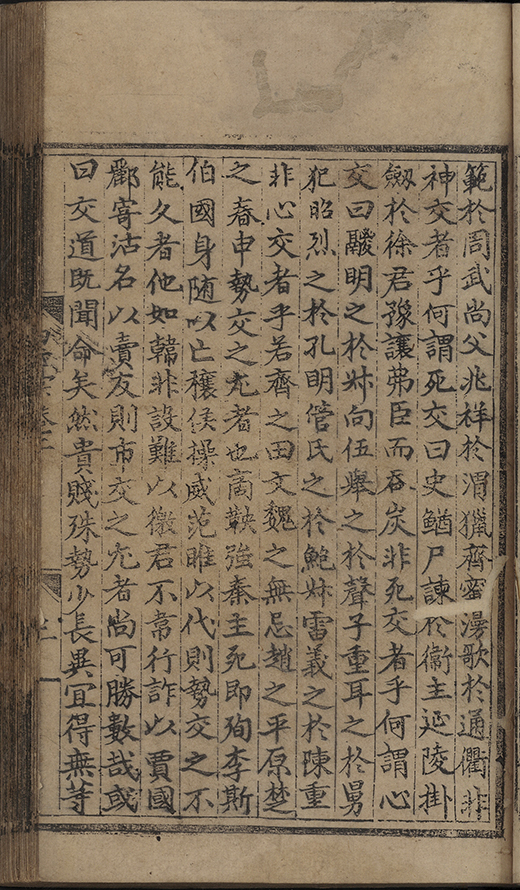 範於周武尚父兆祥於渭獵齊甯謾歌於通衢非
神交者乎何謂死交曰史鰌尸諫於衛主延陵掛
劒於徐君豫讓弗臣而吞炭非死交者乎何謂心
交曰鬷明之於叔向伍擧之於聲子重耳之於舅
犯昭烈之於孔明管氏之於鮑叔雷義之於陳重
非心交者乎若齊之田文魏之無忌趙之平原楚
之春申勢交之尤者也商鞅強秦主死即殉李斯
伯國身随以亡穰侯操威范睢以代則勢交之不
能久者他如韓非設難以徼君不韋行詐以賈國
酈寄沽名以賣友則市交之尤者尚可勝數哉或
曰交道既聞命矣然貴賤殊勢少長異宜得無等